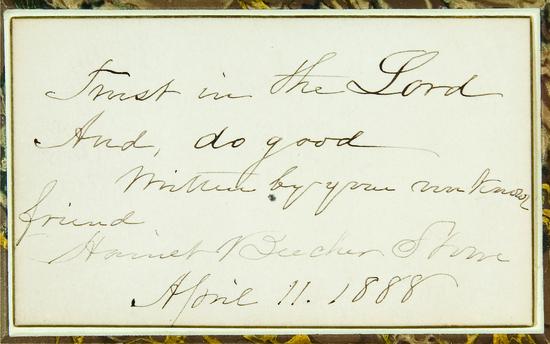 Trust in the Lord
And, do good
Written by your unknown
friend
Harriet Beecher Stowe
April 11. 1888